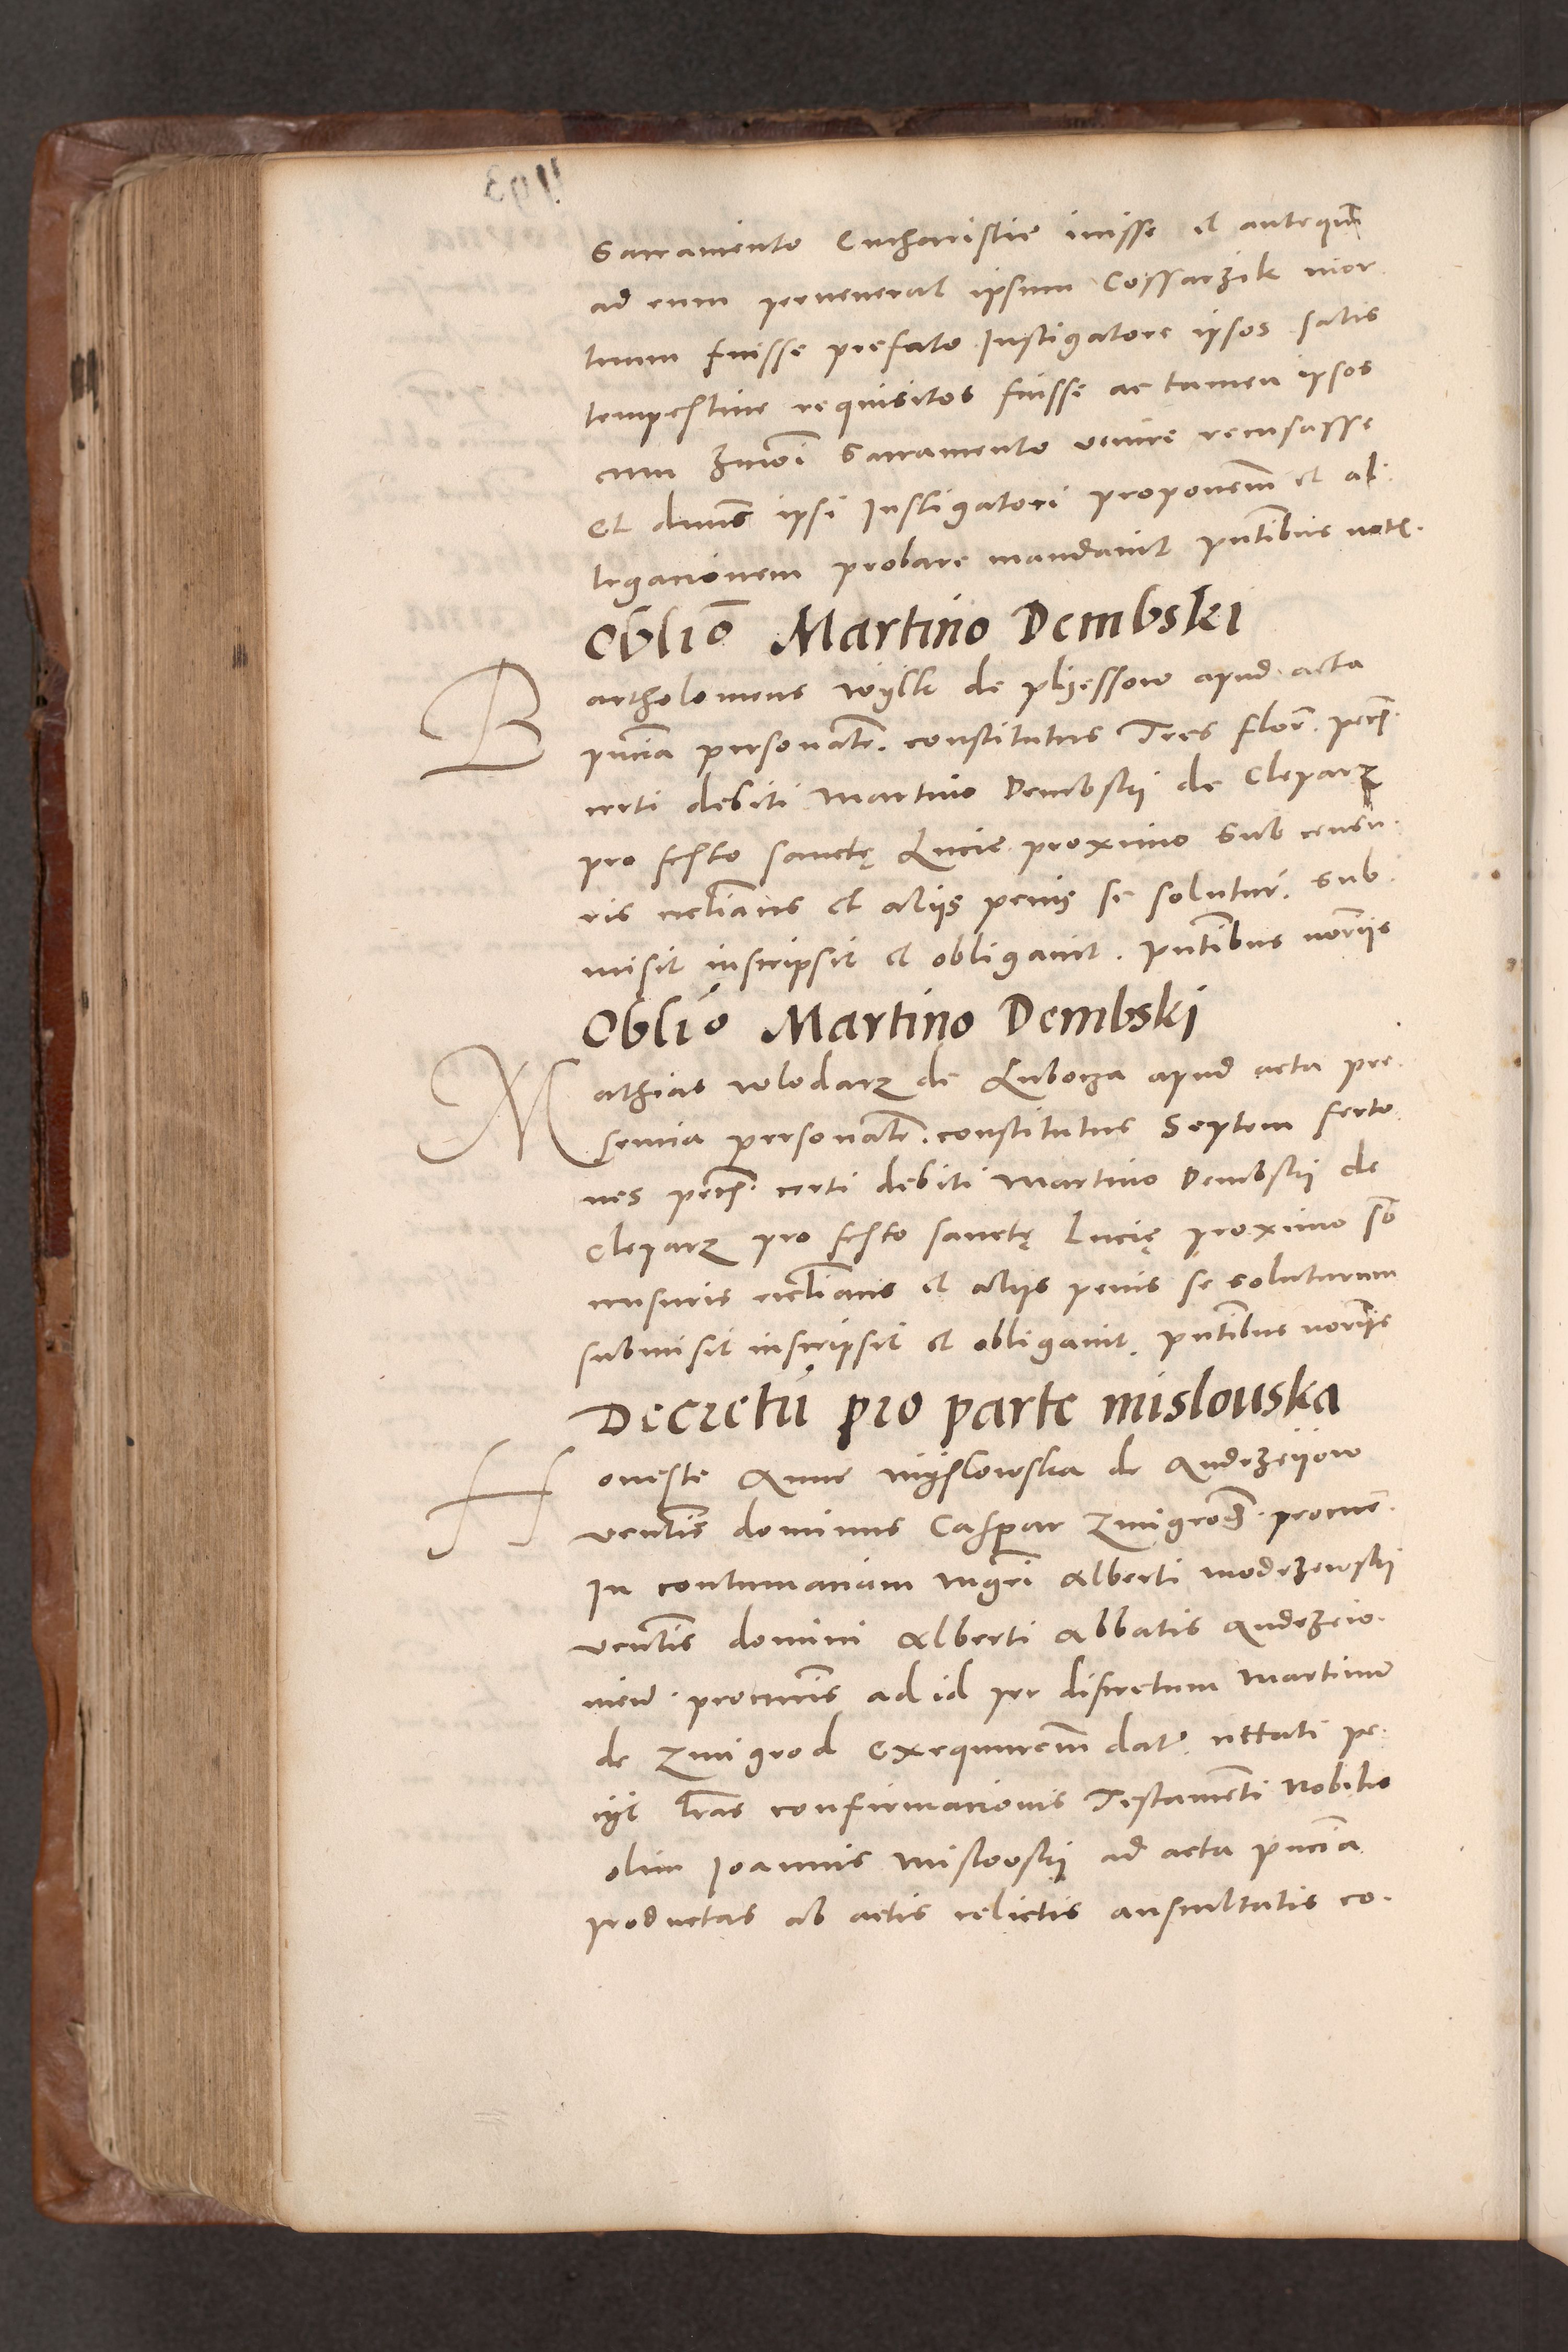 Sacramento Eucharistie iuisse et anteq̃
ad eum pervenerat ipsum Cossarzik mor
tuum fuisse prefato Instigatore ipsos satis
tempestive requisitos fuisse ac tamen ipsos
cum Sacramento venire recusasse
Et dnus ipsi Instigatori proponem̃ et al
legacionem probare mandavit pn̄tibus not.
Oblio Martino Dembski
Bartholomeus wylk de pljessow apud acta
pn̄cia personalr̃. constitutus Tres flor̃. pecũ.
certi debiti Martino Dembskij de Cleparz
pro festo sanctę Lucie proximo Sub censu
ris ecclīacis et aliis penis se solutur̃. sub
misit inscripsit et obligavit. pn̄tibus nor̃iis
Oblio Martino Dembski
Mathias wlodarz de Luborza apud acta pre
sencia personalr̃. constitutus Septem ferto
nes pecũ. certi debiti Martino Dembskij de
Cleparz pro festo sanctę Lucię proximo sb̃
censuris ecclīacis et aliis penis se soluturum
submisit inscripsit et obligavit. pn̄tibus nor̃iis
Decretū pro parte mislouska
Honeste Anne myslowska de Andrzeijow
dominus Caspar Zmigrod̃. procur̃.
In contumaciam mgr̃i Alberti modrzewskij
domini Alberti Abbatis Andrzeio
vien̄. procur̃is ad id per discretum Martinū
de Zmigrod Exequutem̃ dat̃. citati pe
ciit lr̃as confirmacionis Testamenti Nobilis
olim Joannis Mislovskij ad acta pn̄cia
productas ab actis relictis auscultatis co.